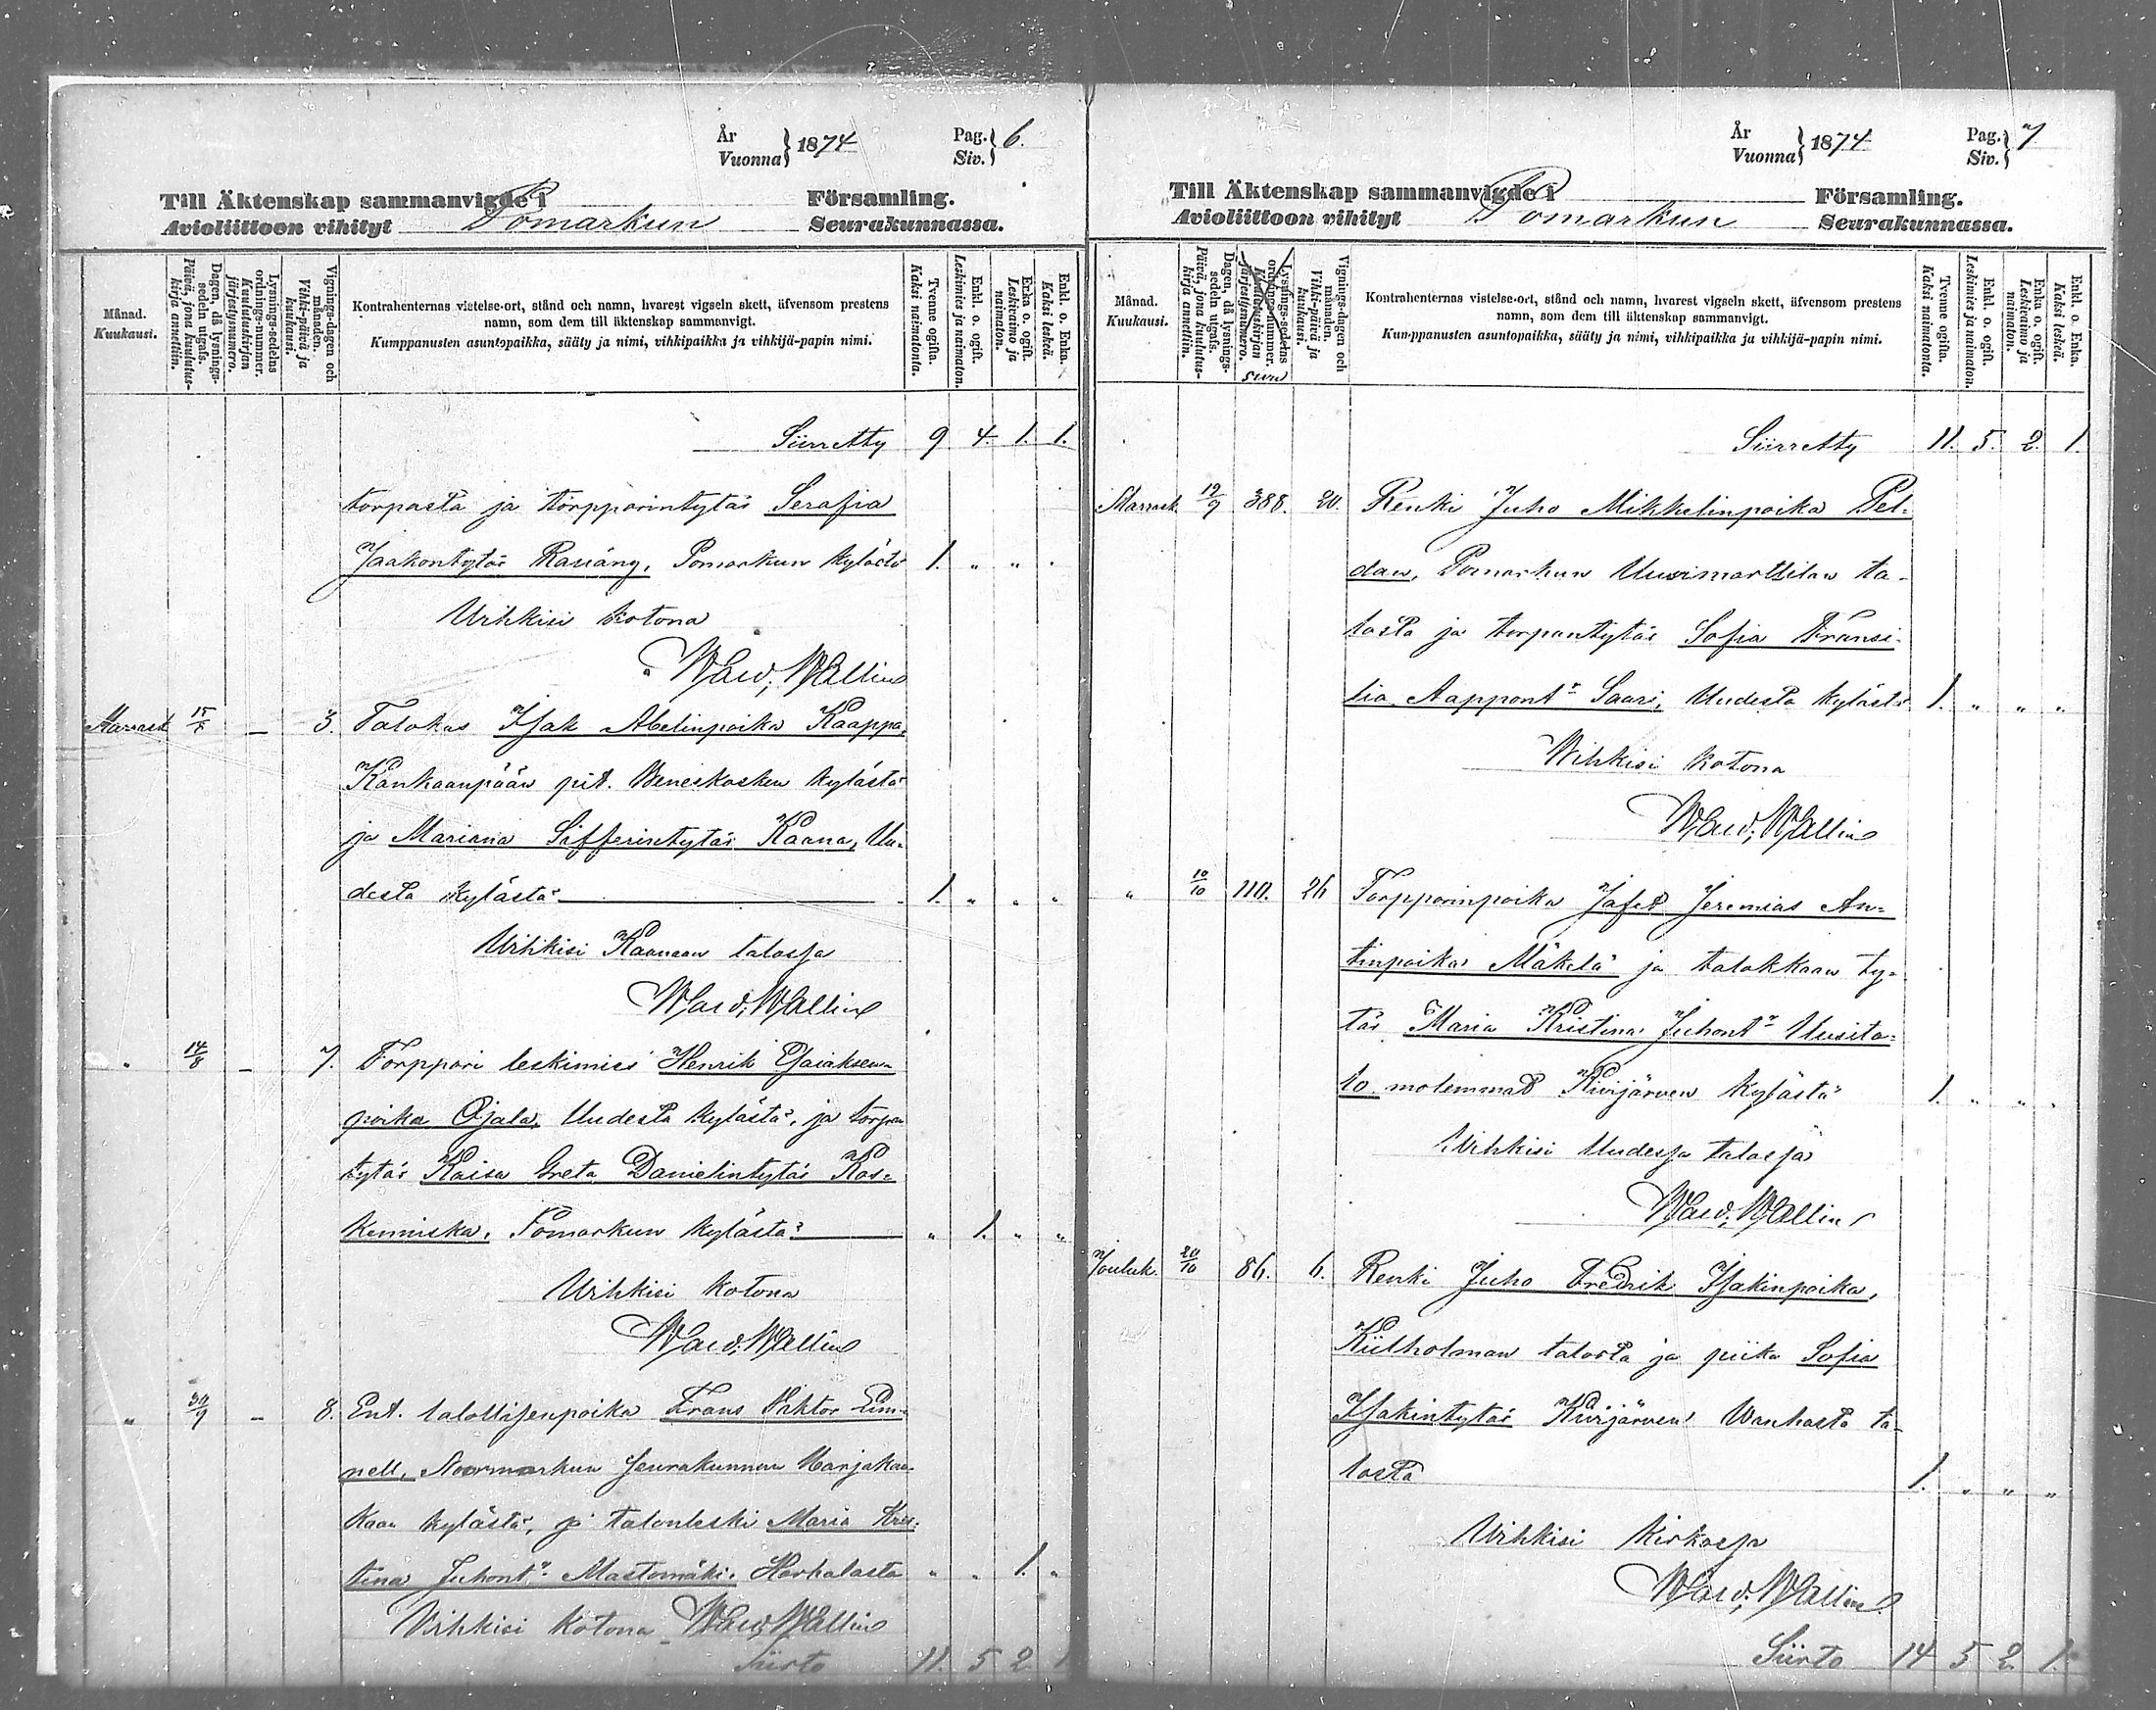 År
Vuonna } 1874
Pag.
Siv. } 6.
Till Äktenskap sammanvigde i Församling.
Avioliittoon vihityt Pomarkun Seurakunnassa.
Månad.
Kuukausi.
Dagen, då lysnings-
sedeln utgafs.
Päivä, jona kuulutus-
kirja annettiin.
Lysnings-sedelns
ordnings-nummer.
Kuulutuskirjan
järjestysnumero.
Vignings-dagen och
månaden.
Vihki-päivä ja
kuukausi.
Kontrahenternas vistelse-ort, stånd och namn, hvarest vigseln skett, äfvensom prestens
namn, som dem till äktenskap sammanvigt.
Kumppanusten asuntopaikka, sääty ja nimi, vihkipaikka ja vihkijä-papin nimi.
Tvenne ogifta.
Kaksi naimatonta.
Enkl. o. ogift.
Leskimies ja naimaton.
Enka o. ogift.
Leskivaimo ja
naimaton.
Enkl. o. Enka.
Kaksi leskeä.
Siirretty 9 4. 1. 1.
torpasta ja torpparintytär Serafia
Jaakontytär Pomarkun kylästä 1. " "
Wihkisi kotona
Wallin
Marrask. 15 — 3. Talokas Isak Abelinpoika Kaappa,
Kankaanpään pit. Weneskosken kylästä
ja Mariana Sifferintytär Kaana, Uu-
desta kylästä 1. " " "
Wihkisi Kaanaan talossa
Wallin
" 14/8 — 7. Torppari leskimies Henrik Esaiaksen-
poika Ojala, Uudesta kylästä, ja torpan
tytär Kaisa Greta Danielintytär Kos-
kenniska, Pomarkun kylästä " 1. " "
Wihkisi kotona
Wallin
" 30/9 — 8. Ent. talollisenpoika Frans Viktor
nell, Noormarkun seurakunnan Harjakan-
kaan kylästä, ja talonleski Maria Kris-
tina Juhont:r Mastomäki, Harhalasta " " 1. "
Vihkisi kotona Wallin
Siirto 11. 5 2 1
År
Vuonna } 1874
Pag.
Siv. } 7
Till Äktenskap sammanvigde i Församling.
Avioliittoon vihityt Pomarkun Seurakunnassa.
Månad.
Kuukausi.
Dagen, då lysnings-
sedeln utgafs.
Päivä, jona kuulutus-
kirja annettiin.
Lysnings-sedelns
ordnings-nummer.
Kuulutuskirjan
järjestysnumero.
sivu
Vignings-dagen och
månaden.
Vihki-päivä ja
kuukausi.
Kontrahenternas vistelse-ort, stånd och namn, hvarest vigseln skett, äfvensom prestens
namn, som dem till äktenskap sammanvigt.
Kumppanusten asuntopaikka, sääty ja nimi, vihkipaikka ja vihkijä-papin nimi.
Tvenne ogifta.
Kaksi naimatonta.
Enkl. o. ogift.
Leskimies ja naimaton.
Enka o. ogift.
Leskivaimo ja
naimaton.
Enkl. o. Enka.
Kaksi leskeä.
Siirretty 11. 5. 2. 1.
Marrask. 12/9 388. 20. Renki Juho Mikkelinpoika Pel-
dan, Pomarkun Uusimarttilan ta-
losta ja torpantytär Sofia Fransi-
lia Aappont:r Saari, Uudesta kylästä 1. " " "
Wihkisi kotona
Wallin
" 10/10 110. 26 Torpparinpoika Jafet Jeremias An-
tinpoika Mäkelä ja talokkaan ty-
tär Maria Kristina Juhont:r Uusita-
lo molemmat Kivijärven kylästä 1. " " "
Wihkisi Uudessa talossa
Wallin
Jouluk. 20/10 86. 6. Renki Juho Fredrik Isakinpoika,
Kiilholman talosta ja piika Sofia
Isakintytär Kivijärven Wanhasta ta-
losta 1. " " "
Wihkisi kirkossa
Wallin
Siirto 14 5 2 1.